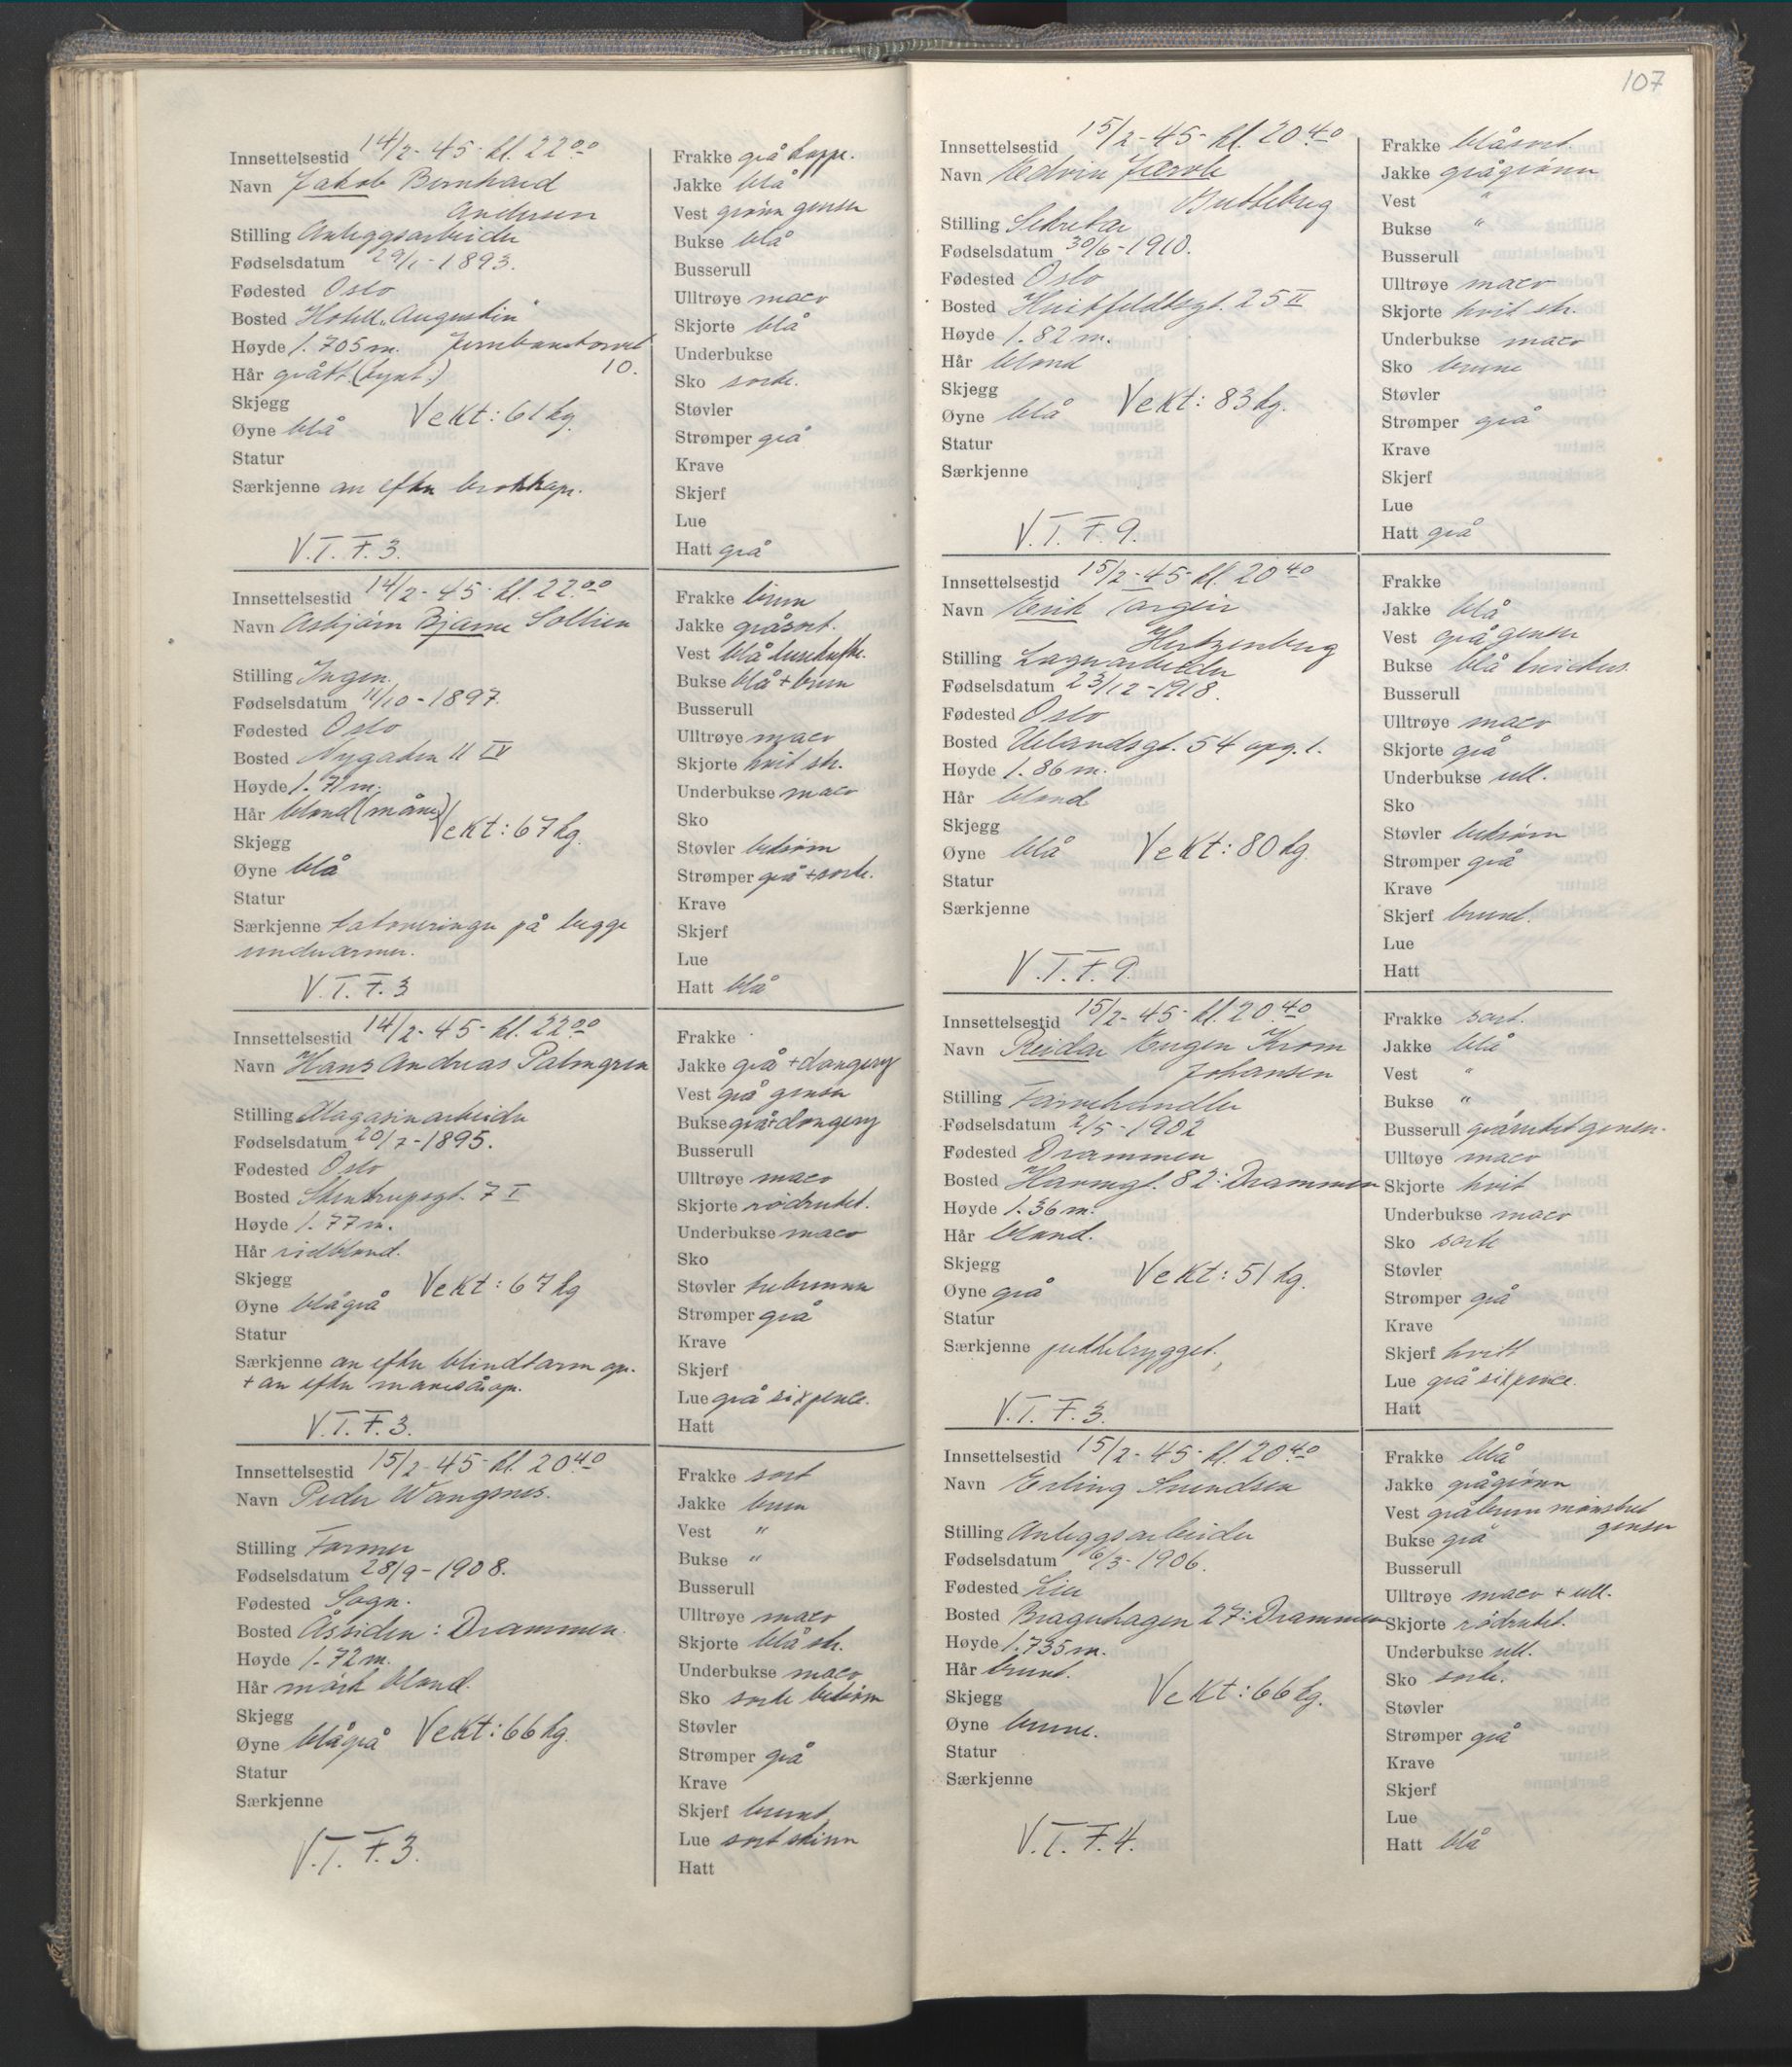 107
Innsettelsestid 14/2-45- kl. 22.00
Navn Jakob Bernhard
Andersen
Stilling Anleggsarbeider
Fødselsdatum 29/1-1893.
Fødested Oslo
Bosted Hotell „Augustin"
Høyde 1.705 m. Jernbanetorvet
10.
Hår grått. (tynt.)
Skjegg
Øyne blå Vekt: 61 kg.
Statur
Særkjenne arr efter brokkop.
V.T.F. 3.
Frakke grå kappe.
Jakke blå
Vest grønn genser
Bukse blå
Busserull
Ulltrøye maco
Skjorte blå
Underbukse
Sko sorte.
Støvler
Strømper grå
Krave
Skjerf
Lue
Hatt grå
Innsettelsestid 14/2-45- kl. 22.00
Navn Asbjørn Bjarne Sollien
Stilling Ingen.
Fødselsdatum 11/10-1897.
Fødested Oslo
Bosted Nygaten 11 IV
Høyde 1.71 m.
Hår blond (måne)
Skjegg Vekt: 67 kg.
Øyne blå
Statur
Særkjenne tatoveringer på begge
underarmer.
V.T.F. 3
Frakke brun
Jakke gråsort.
Vest blå lusekofte.
Bukse blå + brun
Busserull
Ulltrøye maco
Skjorte hvit str.
Underbukse maco
Sko
Støvler beksøm
Strømper grå + sorte.
Krave
Skjerf
Lue
Hatt blå
Innsettelsestid 14/2-45- kl. 22.00
Navn Hans Andreas Palmgren
Stilling Magasinarbeider
Fødselsdatum 20/7-1895.
Fødested Oslo
Bosted Stenstrupsgt. 7 I
Høyde 1.77 m.
Hår rødblond.
Skjegg Vekt: 67 kg
Øyne blågrå
Statur
Særkjenne arr efter blindtarm op.
+ arr efter mavesår op.
V.T.F. 3.
Frakke
Jakke grå + dongery
Vest grå genser
Bukse grå + dongery
Busserull
Ulltrøye maco
Skjorte rødrutet.
Underbukse maco
Sko
Støvler trebunner
Strømper grå
Krave
Skjerf
Lue grå sixpence.
Hatt
Innsettelsestid 15/2-45- kl. 20.40
Navn Peder Wangsnes.
Stilling Farmer
Fødselsdatum 28/9-1908.
Fødested Sogn.
Bosted Åssiden: Drammen.
Høyde 1.72 m.
Hår mørk blond.
Skjegg
Øyne blågrå Vekt: 66 kg.
Statur
Særkjenne
V.T.F. 3.
Frakke sort
Jakke brun
Vest "
Bukse "
Busserull
Ulltrøye maco
Skjorte blå str.
Underbukse maco
Sko sorte beksøm
Støvler
Strømper grå
Krave
Skjerf brunt
Lue sort skinn
Hatt
Innsettelsestid 15/2-45- kl. 20.40
Navn Edvin
Stilling Sekretær
Fødselsdatum 30/6-1910.
Fødested Oslo
Bosted Huitfeldtsgt. 25 II
Høyde 1.82 m.
Hår blond
Skjegg
Øyne blå Vekt: 83 kg.
Statur
Særkjenne
V.T.F. 9.
Frakke blåsort.
Jakke grågrønn
Vest "
Bukse "
Busserull
Ulltrøye maco
Skjorte hvit str.
Underbukse maco
Sko brune
Støvler
Strømper grå
Krave
Skjerf
Lue
Hatt grå
Innsettelsestid 15/2-45- kl. 20.40
Navn Erik Torgeir
Hertzenberg
Stilling Lagerarbeider
Fødselsdatum 23/12-1918.
Fødested Oslo
Bosted Uelandsgt. 54 opg. 1.
Høyde 1.86 m.
Hår blond
Skjegg
Øyne blå Vekt: 80 kg.
Statur
Særkjenne
V.T.F. 9.
Frakke
Jakke blå
Vest grå genser
Bukse blå knickers.
Busserull
Ulltrøye maco
Skjorte grå
Underbukse ull.
Sko
Støvler beksøm
Strømper grå
Krave
Skjerf brunt.
Lue
Hatt
Innsettelsestid 15/2-45- kl. 20.40
Navn Reidar Eugen Krom
Johansen
Stilling Farvehandler
Fødselsdatum 2/5-1902
Fødested Drammen
Bosted Havnegt. 82: Drammen
Høyde 1.36 m.
Hår blond.
Skjegg
Øyne grå Vekt: 51 kg.
Statur
Særkjenne pukkelrygget.
V.T.F. 3.
Frakke sort.
Jakke blå
Vest "
Bukse "
Busserull grårutet genser
Ulltøye maco
Skjorte hvit
Underbukse maco
Sko sorte
Støvler
Strømper grå
Krave
Skjerf hvitt
Lue grå sixpence.
Hatt
Innsettelsestid 15/2-45- kl. 20.40
Navn Erling Svendsen
Stilling Anleggsarbeider
Fødselsdatum 6/3-1906.
Fødested Lier
Bosted Bragerhagen 27: Drammen
Høyde 1.735 m.
Hår brunt.
Skjegg Vekt: 66 kg.
Øyne brune.
Statur
Særkjenne
V.T.F. 4.
Frakke blå
Jakke grågrønn
Vest gråbrun mønstret
genser
Bukse grå
Busserull
Ulltrøye maco + ull.
Skjorte rødrutet.
Underbukse ull.
Sko sorte.
Støvler
Strømper grå
Krave
Skjerf
Lue
Hatt blå